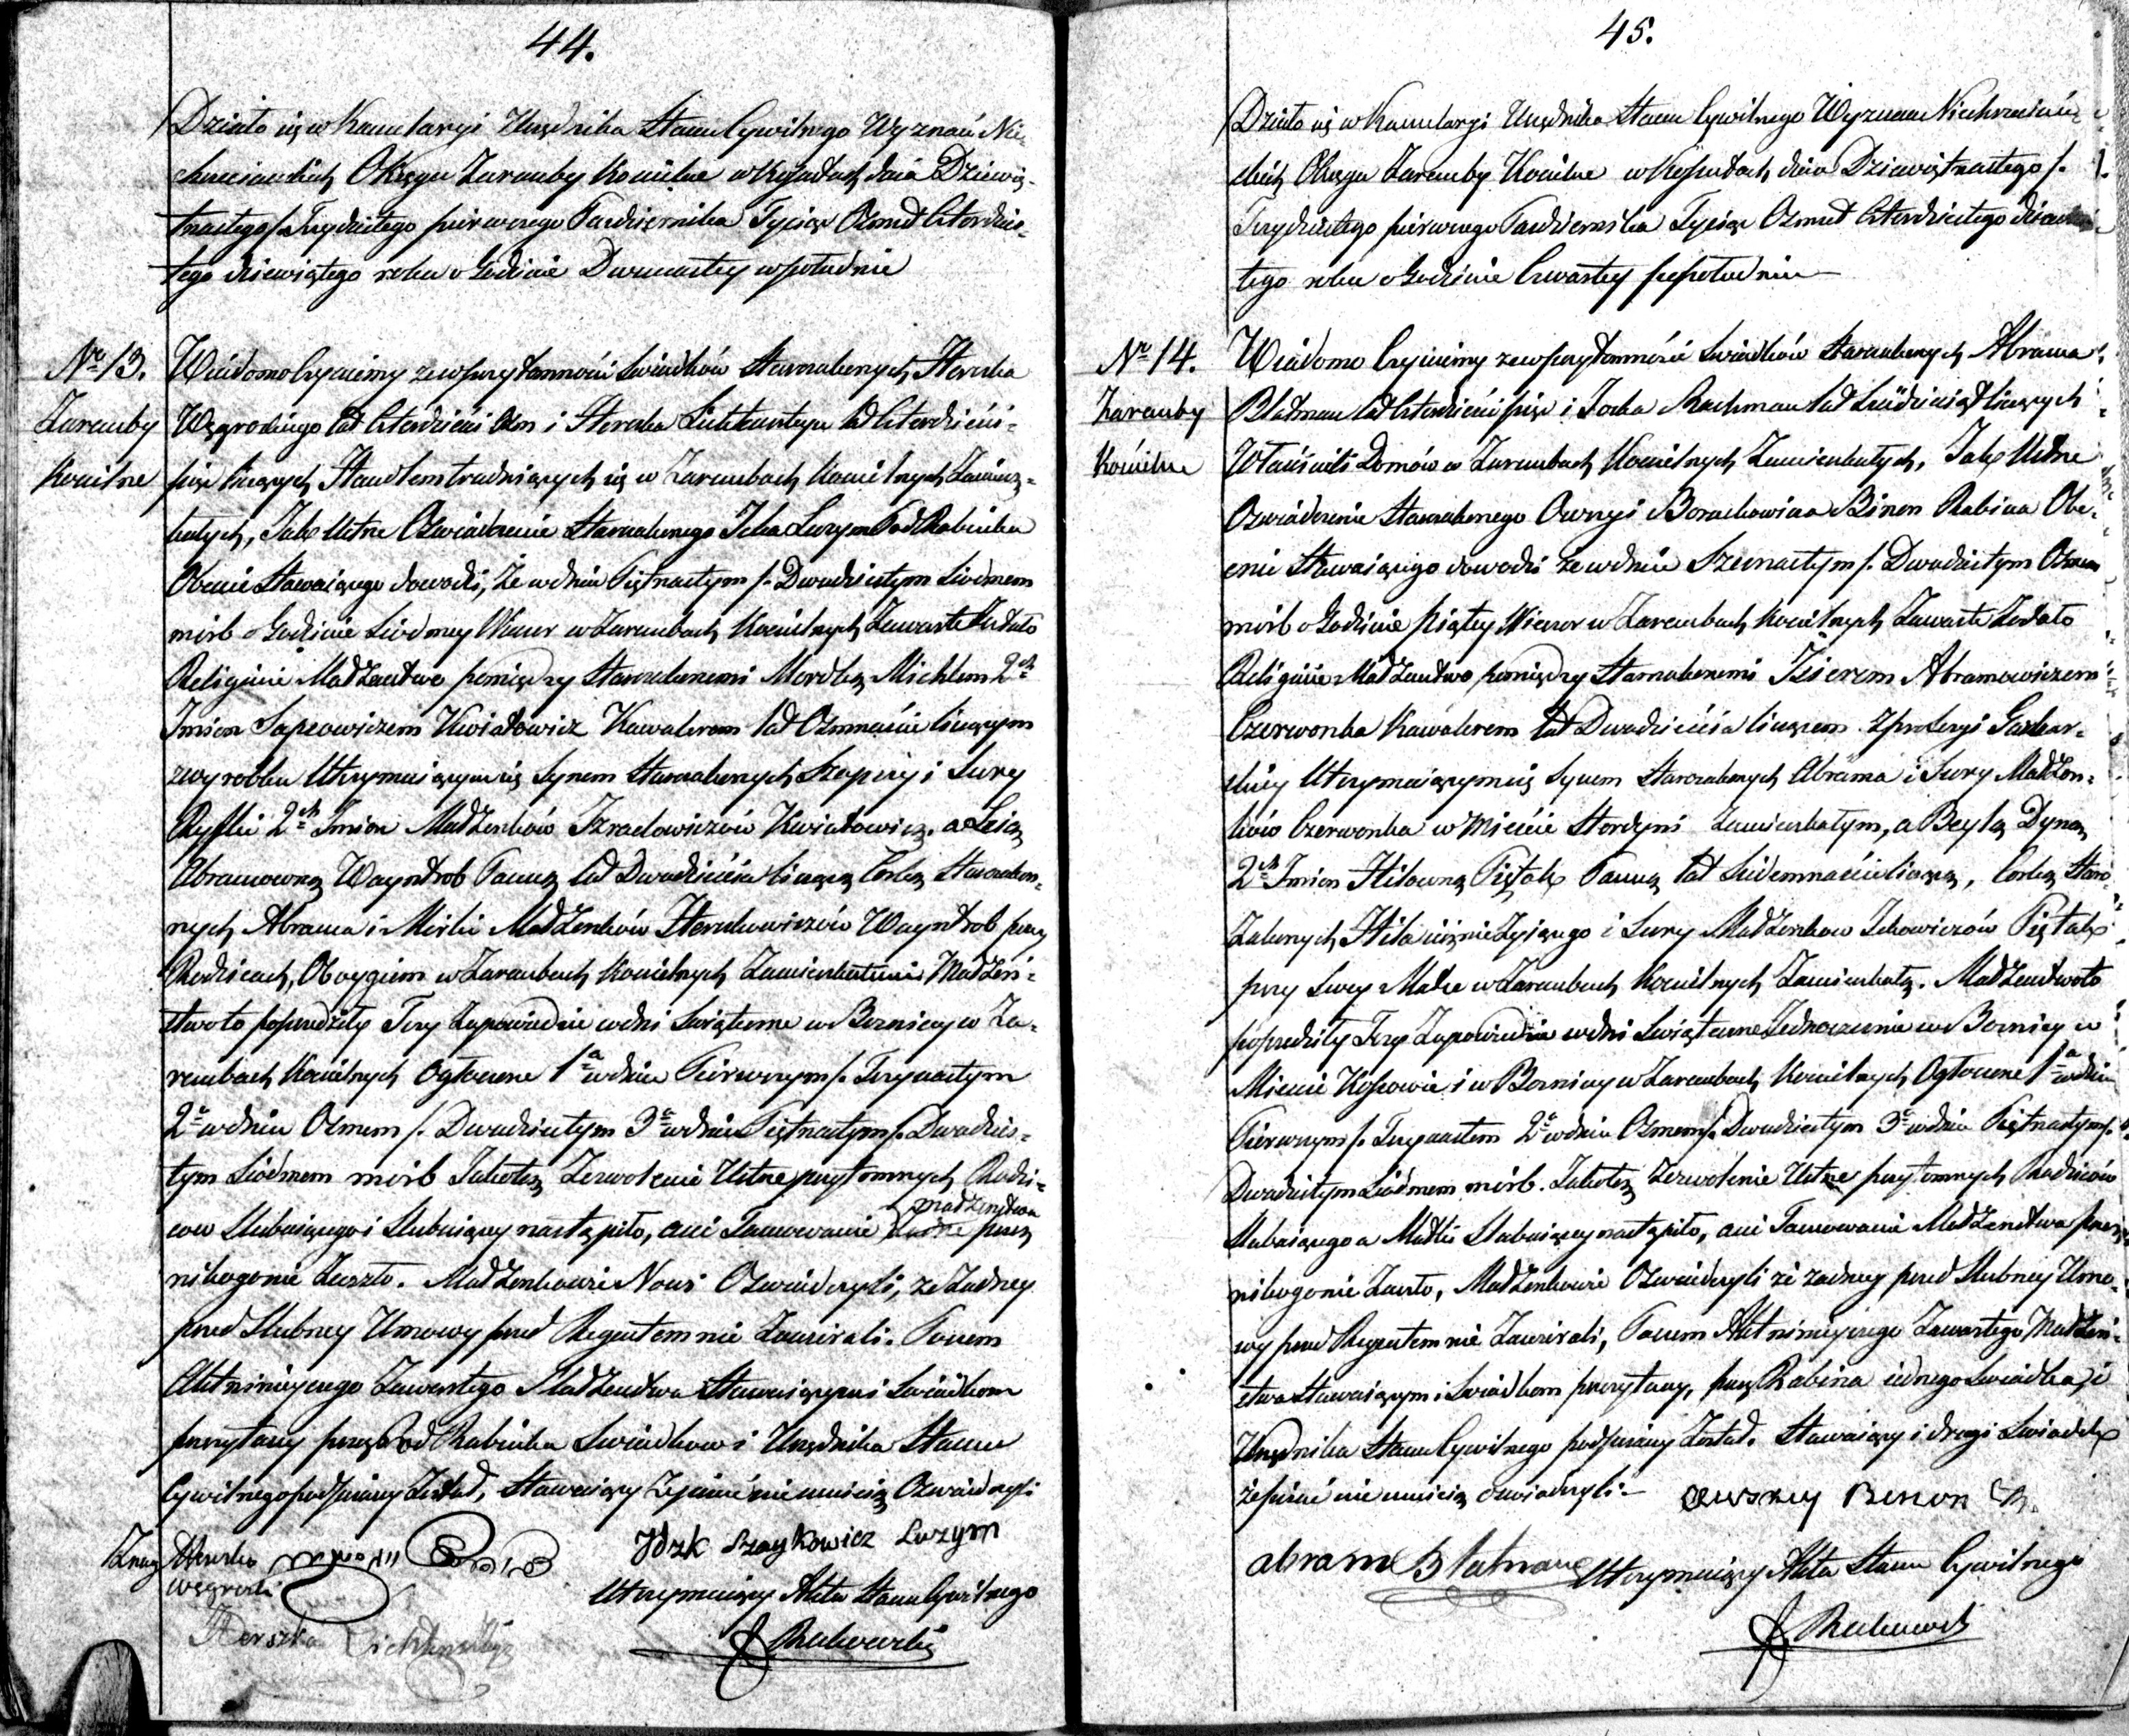 44.
Działo się w Kancelaryi Urzędnika Stanu Cywilnego Wyznań Nie-
chrześciańskich Okręgu Zaremby Kościelne w Kosutach dnia Dziewię-
tnastego /: Trzydziestego pierwszego Października Tysiąc Osmset Czterdzies-
tego dziewiątego roku o Godzinie Dwunastey w południe
No 13.
Zaremby
Kościelne
Wiadomo Czyniemy że w przytomności Świadków Starozakonnych Herszka
Węgrockiego lat Czterdzieści Osm i Herszka Lichtensteyn lat Czterdzieści-
pięć liczących Handlem trudniących się w Zarembach Kościelnych Zamiesz-
kałych, Jako Ustne Oświadczenie Starozakonnego Icka Lurzym Pod Rabinka
Obecnie Stawaiącego dowodzi, Że w dniu Piętnastym /: Dwudziestym Siódmem
mśrb o Godzinie Siódmey Wieczor w Zarembach Kościelnych Zawarte Zostało
Religiinie Małżeństwo pomiędzy Starozakonnemi Mordką Michlem 2ch
Imion Szapsiowiczem Kwiatowicz Kawalerem lat Ośmnaście liczącym
z wyrobku Utrzymuiącym się Synem Starozakonnych Szepszy i Sury
Ryfki 2ch Imion Małżonków Izraelowiczów Kwiatowicz. a Leią
Abramowną Wayntrob Panną lat Dwadzieścia liczącą Córką Starozakon-
nych Abrama i Mirki Małżonków Herszkowiczów Wayntrob przy
Rodzicach, Oboygiem w Zarembach Kościelnych Zamieszkałemi Małżeń-
stwo to poprzedziły Trzy Zapowiedzie w dni Świąteczne w Boznicy w Za-
rembach Kościelnych Ogłoszone 1a w dniu Pierwszym /: Trzynastym
2a w dniu Osmem /: Dwudziestym 3a w dniu Piętnastym /: Dwudzies-
tym Siódmem mśrb Jakoteż Zezwolenie Ustne przytomnych Rodzi-
małżeństwa
ców Slubuiącego i Slubuiącey nastąpiło, ani Tamowanie przez
nikogo nie Zaszło. Małżonkowie Nowi Oświadczyli, że Żadney
przed Slubney Umowy przed Regentem nie Zawierali. Poczem
Akt ninieyszego Zawartego Małżeństwa Stawaiącym i Świadkom
przeczytany przez Pod Rabinka Swiadkow i Urzędnika Stanu
Cywilnego podpisany Został, Stawaiący Że pisać nie umieią Oświadczyli
Znaj Herszko
Węgrocki
Jdzk Szaykowicz Lurzym
Utrzymuiący Akta Stanu Cywilnego
Herszka Lichtensztejn
Rakowski
45.
Działo się w Kancelaryi Urzędnika Stanu Cywilnego Wyznan Niechrześciań-
skich Okręgu Zaremby Kościelne w Kosutach dnia Dziewiętnastego /:
Trzydziestego pierwszego Października Tysiąc Osmset Czterdziestego dziewią-
tego roku o Godzinie Czwartey po południu
No 14.
Zaremby
Kościelne
Wiadomo Czyniemy że w przytomności Świadków Starozakonnych Abrama
Blatman lat Czterdzieści pięć i Jocka Rachman lat Sześćdziesiąt liczących
Właścicieli Domów w Zarembach Kościelnych Zamieszkałych, Jako Ustne
Oświadczenie Starozakonnego Owszyi Boruchowicza Binon Rabina Obe-
cnie Stawaiącego dowodzi że w dniu Szesnastym /: Dwudziestym Osmem
mśrb o Godzinie Piątey Wieczor w Zarembach Kościelnych Zawarte Zostało
Religiinie Małżeństwo pomiędzy Starozakonnemi Iserem Abramowiczem
Czerwonka Kawalerem lat Dwadzieścia liczącem z professyi Garbar-
skiey Utrzymuiącym się Synem Starozakonnych Abrama i Sury Małżon-
ków Czerwonka w Mieście Sterdyni Zamieszkałym, a Beylą Dyną
2ch Imion Hilowną Piątek Panną lat Siedemnaście liczącą, Córką Staro-
Zakonnych Hila iuż nie Żyiącego i Sury Małżonkow Ickowiczów Piątek
przy Swey Matce w Zarembach Kościelnych Zamieszkałą. Małżeństwo to
poprzedziły Trzy Zapowiedzie w dni Świąteczne Jednocześnie w Boznicy w
Mieście Kossowie i w Boznicy w Zarembach Kościelnych Ogłoszone 1a w dniu
Pierwszym /: Trzynastem 2a w dniu Osmem /: Dwudziestym 3a w dniu Piętnastym /:
Dwudziestym Siódmem mśrb. Jakoteż Zezwolenie Ustne przytomnych Rodziców
Slubuiącego a Matki Slubuiącey nastąpiło, ani Tamowanie Małżeństwa przez
nikogo nie Zaszło, Małżonkowie Oświadczyli że żadney przed Slubney Umo-
wy przed Regentem nie Zawierali, Poczem Akt ninieyszego Zawartego Małżeń-
stwa Stawaiącym i Świadkom przeczytany, przez Rabina iednego Świadka, i
Urzędnika Stanu Cywilnego podpisany Został. Stawaiący i drugi Świadek
że pisać nie umieią oświadczyli-
Owszey Binon R.
abram Blatman
Utrzymuiący Akta Stanu Cywilnego
Rakowski